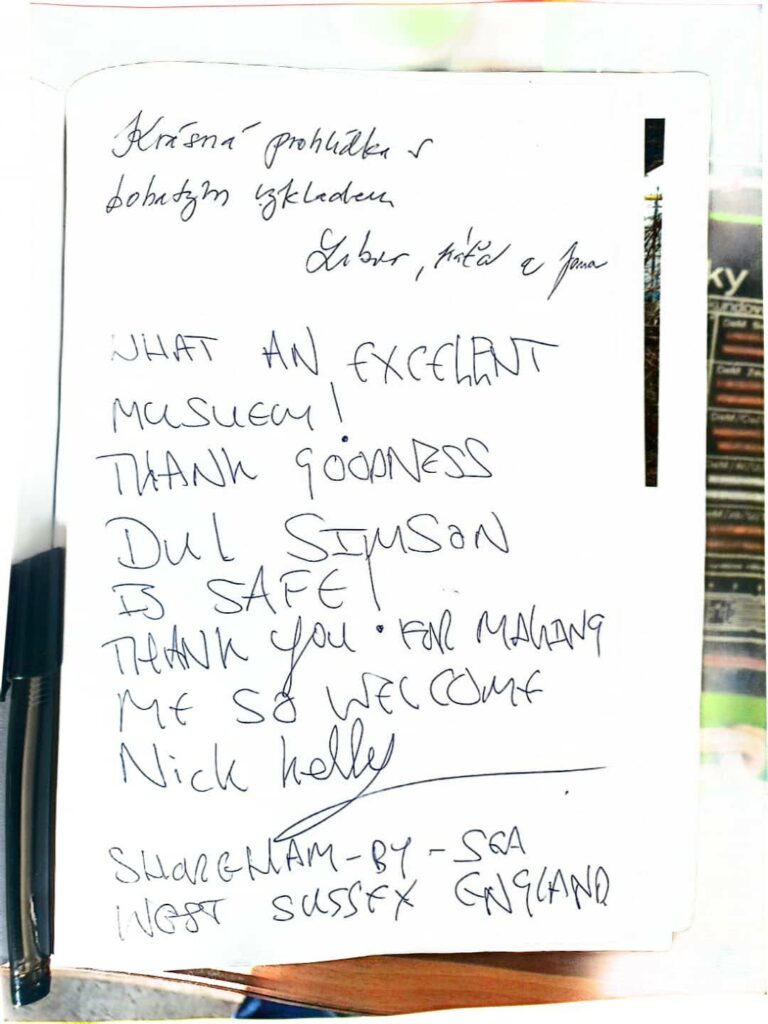 Krásná prohlídka s
bohatým výkladem
Libor, Káťa a Jana
WHAT AN EXCELLENT
MUSUEM!
THANK GOODNESS
DUL SIMSON
IS SAFE!
THANK YOU FOR MAKING
ME SO WELCOME
Nick Kelly
SHOREHAM-BY-SEA
WEST SUSSEX ENGLAND
ky